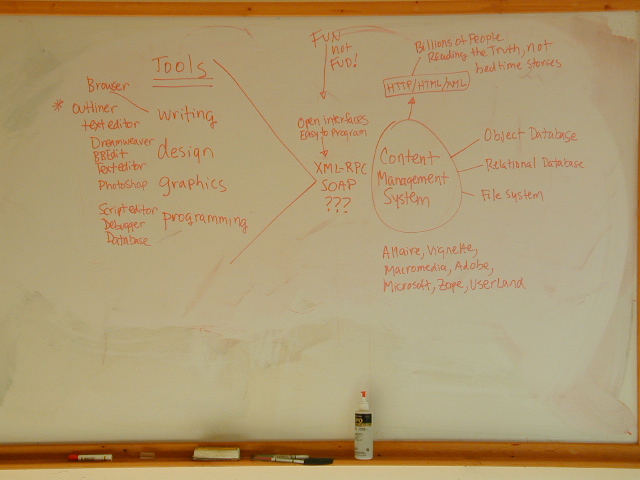 Tools
Browser
* Outliner
text editor
writing
Dreamweaver
BBEdit
Text editor
design
Photoshop
graphics
Script editor
Debugger
Database
programming
FUN
not
FUD!
Open Interfaces
Easy to Program
XML-RPC
SOAP
???
Billions of People
Reading the Truth, not
bedtime stories
HTTP/HTML/XML
Content
Management
System
Object Database
Relational Database
File System
Allaire, Vignette,
Macromedia, Adobe,
Microsoft, Zope, UserLand